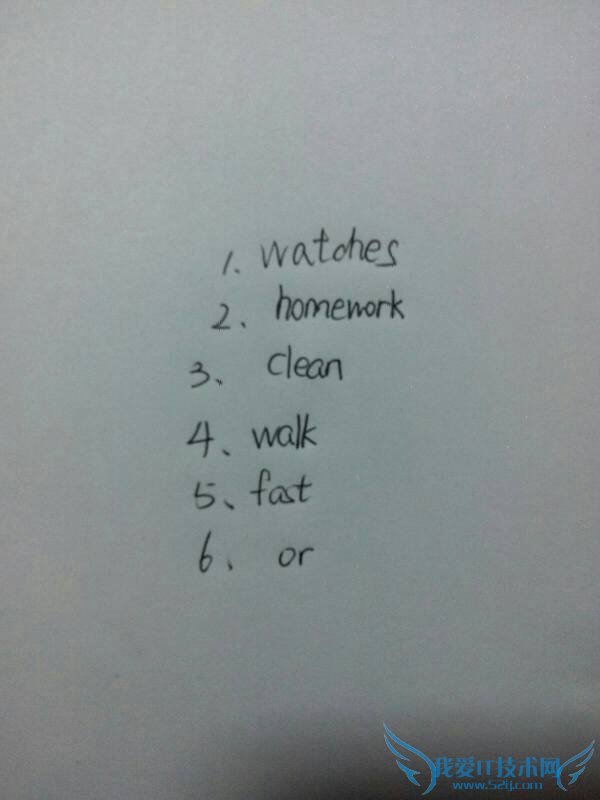 1、watches
2、homework
3、clean
4、walk
5、fast
6、or
我爱IT技术网
www.52ij.com